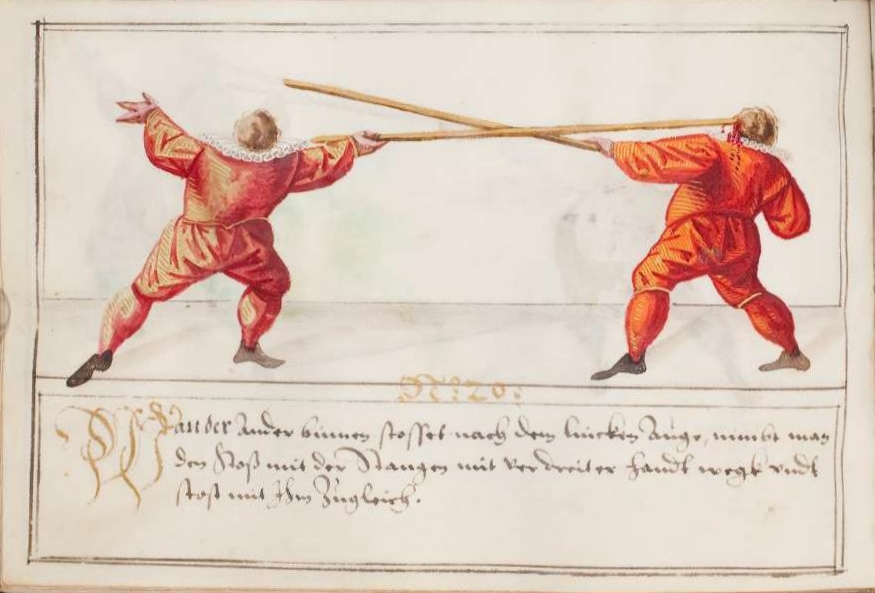 N.º 20.
Wan der Ander binnen stosset nach dem lincken Auge, nimbt man
den Stoß mit der Stangen mit verdreiter handt wegk vndt
stost mit Ihm Zugleich.